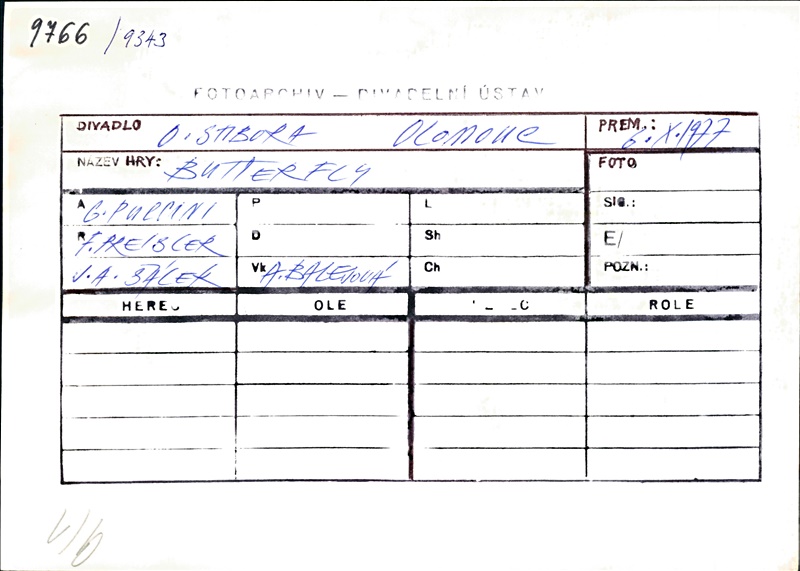 9766 / 9343
FOTOARCHIV — DIVADELNÍ ÚSTAV
DIVADLO O. STIBORA OLOMOUC PREM.: 6.X.1977
NÁZEV HRY: BUTTERFLY FOTO
A G. PUCCINI P L SIG.:
R F. PREISLER D Sh E/
V. A. ŠÁLEK Vk A. BALEVOVÁ Ch POZN.:
HEREC OLE ROLE